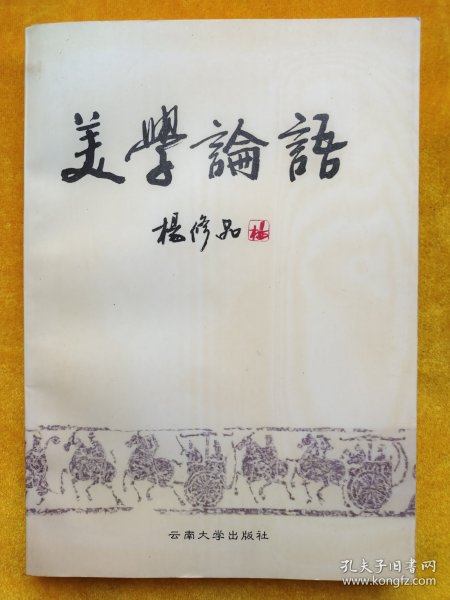 美學論語
楊修品 楊
云南大学出版社
孔夫子旧书网
www.kongfz.com